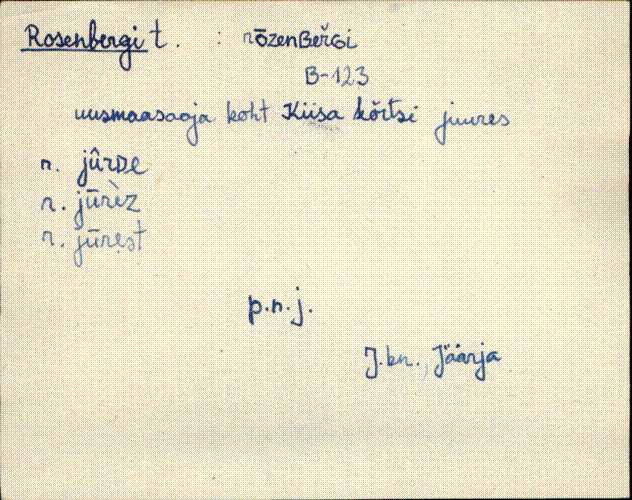 Rosenbergi t. : rōzenʙeřɢi
B-123
uusmaasaaja koht Kiisa kõrtsi juures
n. jûrᴅe
n. jūrèz
n. jūrest
p.n.j.
J.kn., Jäärja